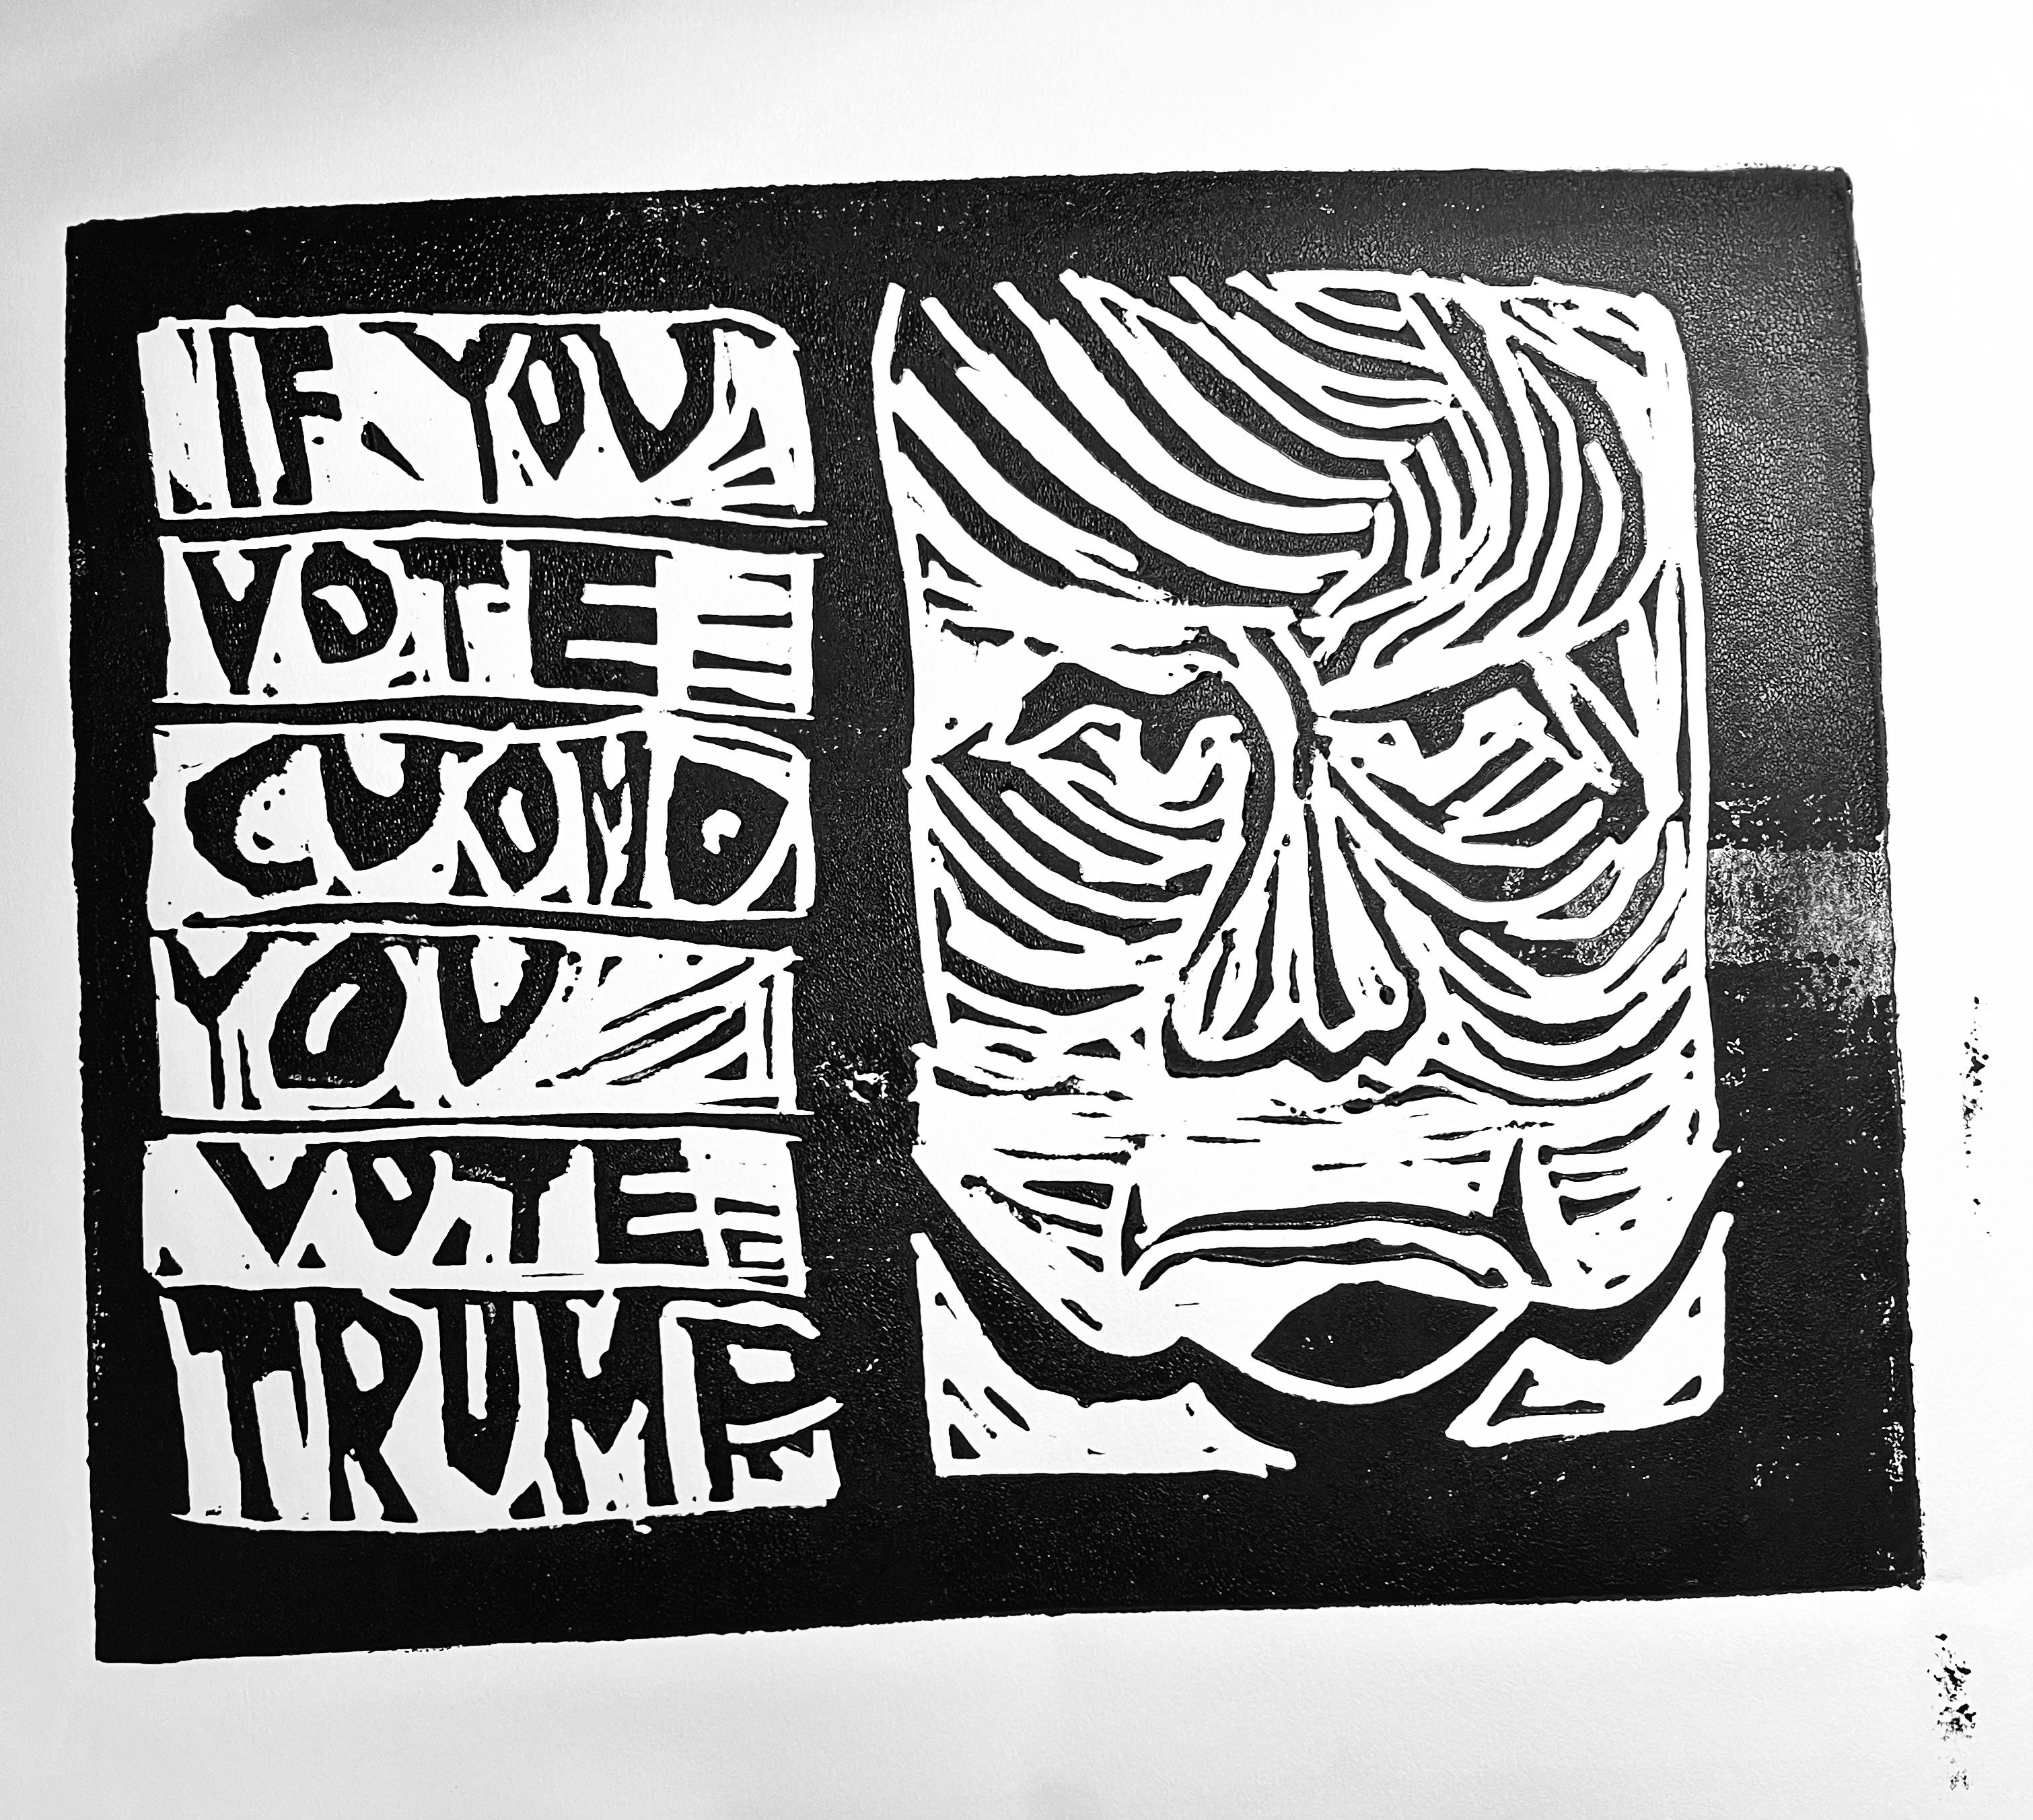 IF YOU
VOTE
CUOMO
YOU
VOTE
TRUMP